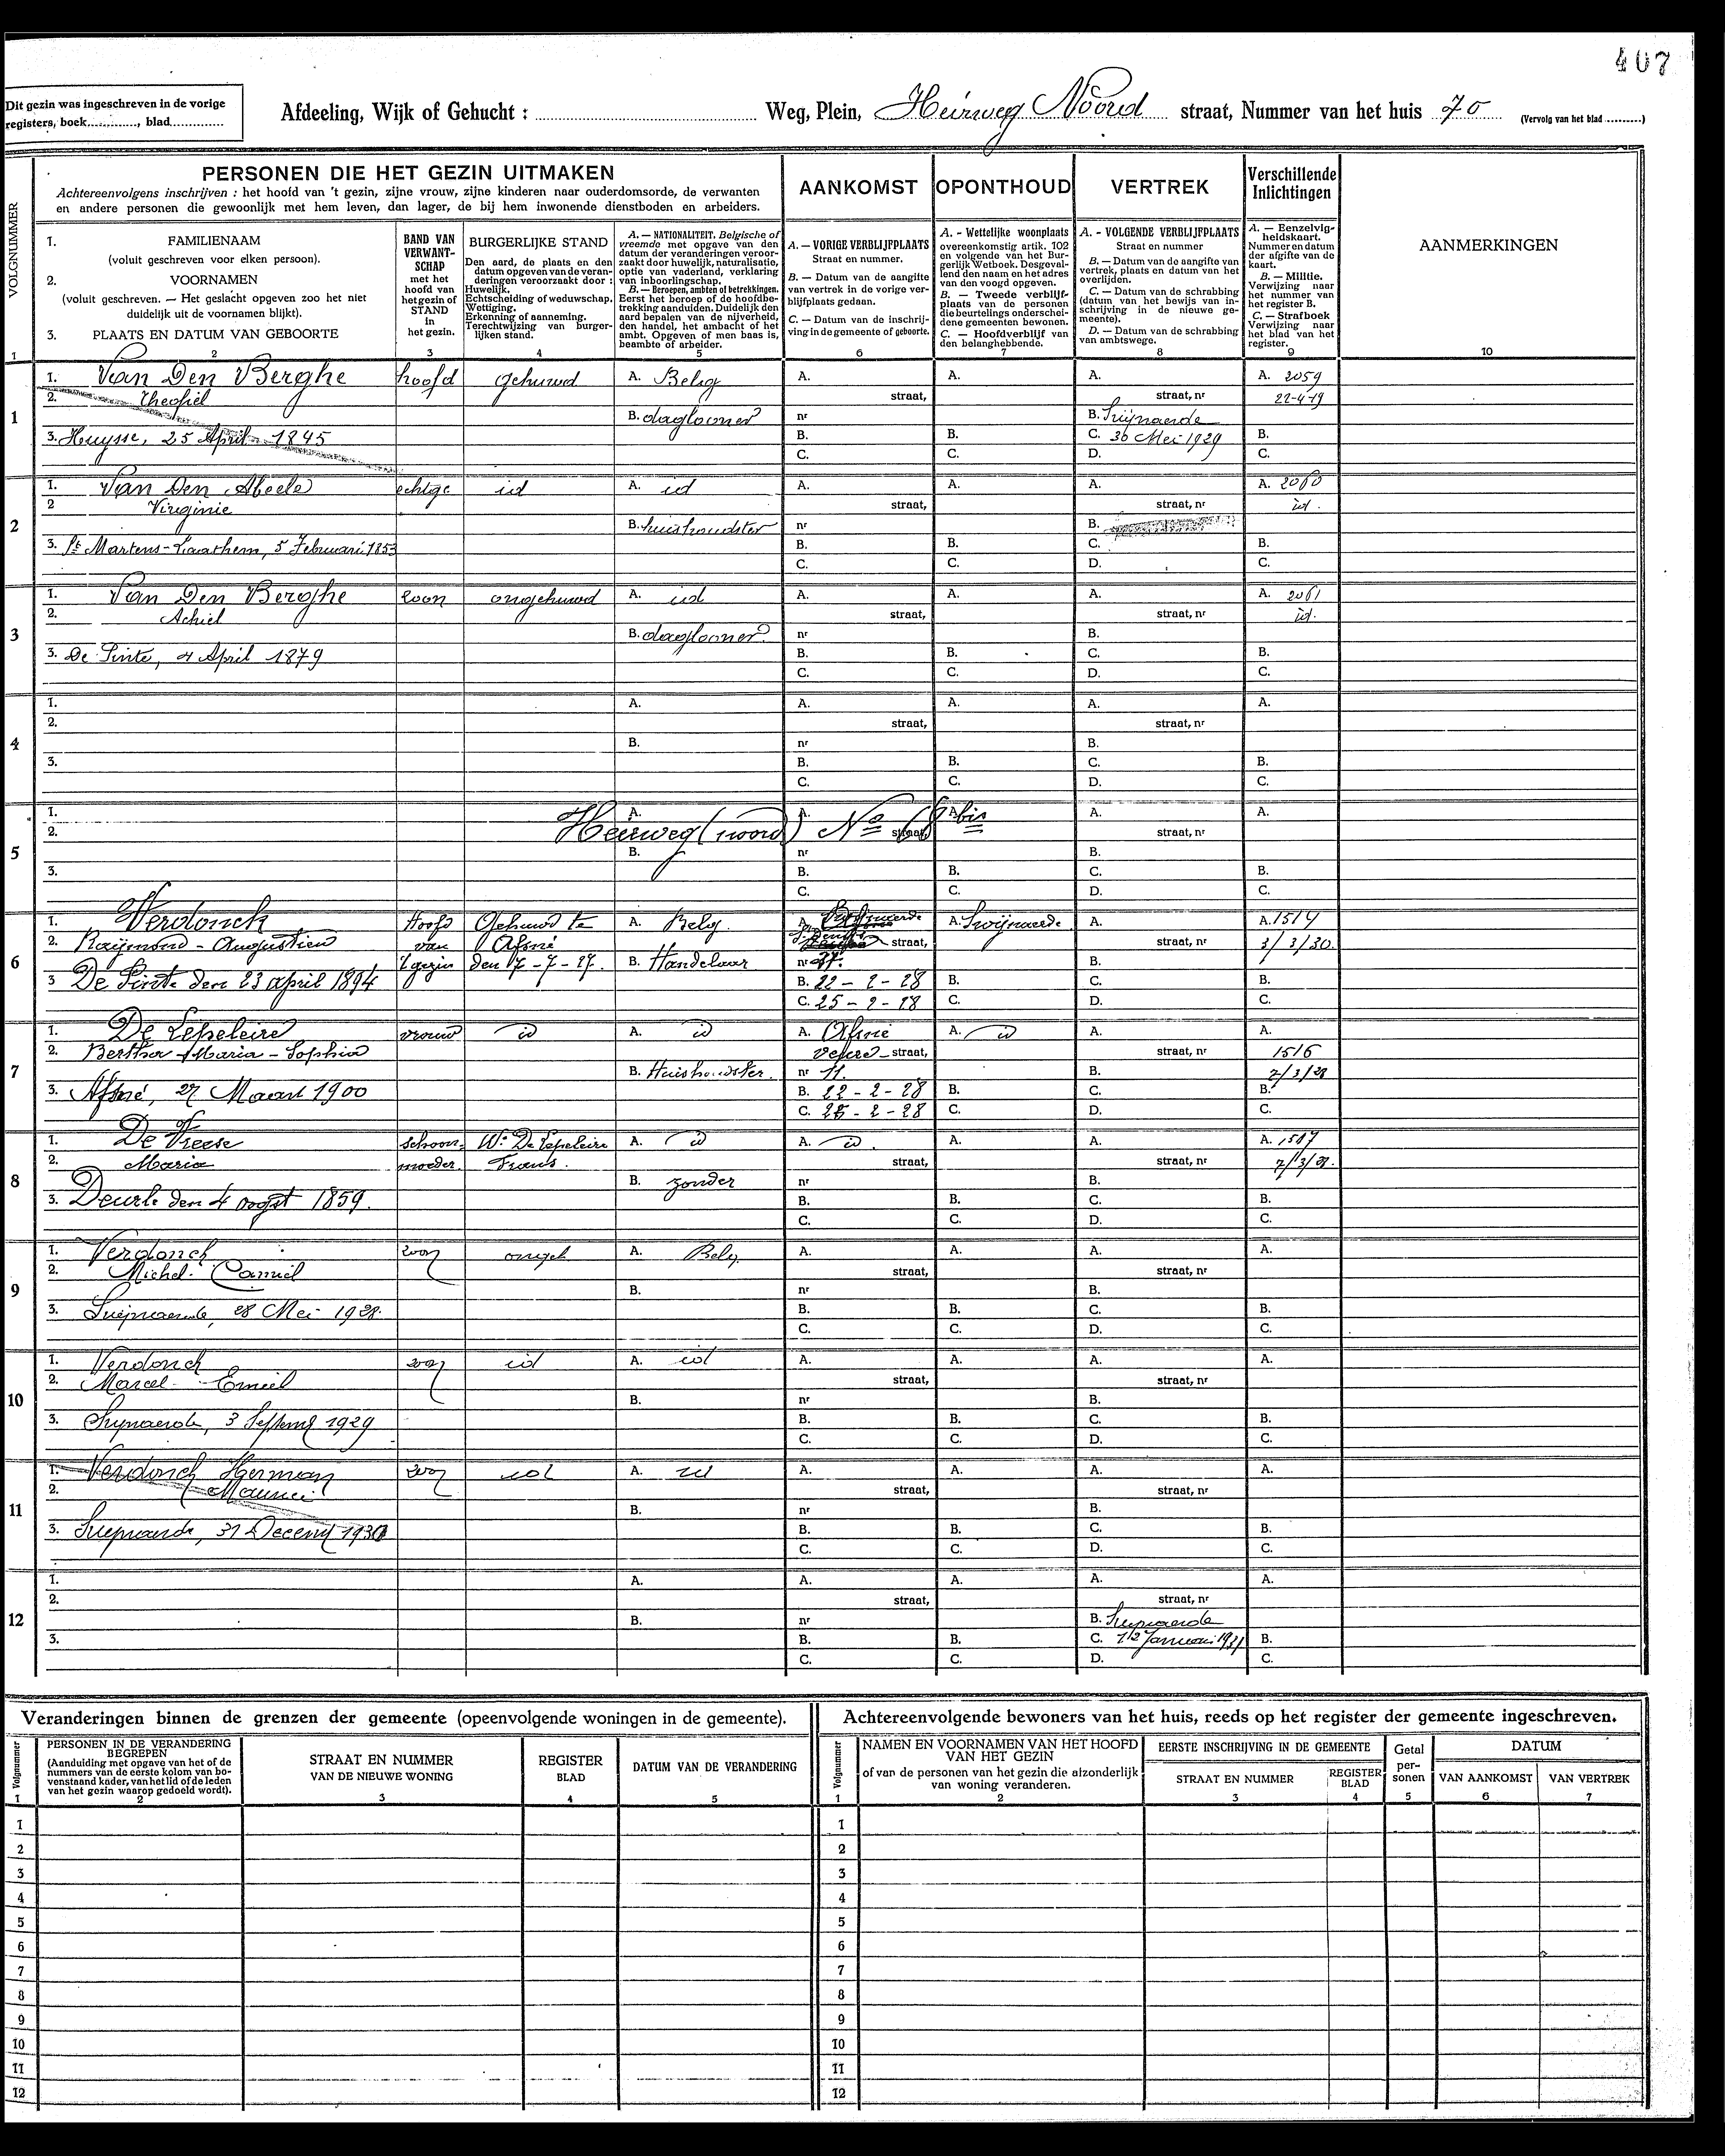 407
Dit gezin was ingeschreven in de vorige
registers, boek............, blad.............
Afdeeling, Wijk of Gehucht : Weg, Plein, Heirweg Noord straat, Nummer van het huis 70 (Vervolg van het blad ..........)
VOLGNUMMER
PERSONEN DIE HET GEZIN UITMAKEN
Achtereenvolgens inschrijven : het hoofd van 't gezin, zijne vrouw, zijne kinderen naar ouderdomsorde, de verwanten
en andere personen die gewoonlijk met hem leven, dan lager, de bij hem inwonende dienstboden en arbeiders.
AANKOMST
OPONTHOUD
VERTREK
Verschillende
Inlichtingen
1. FAMILIENAAM
(voluit geschreven voor elken persoon).
2. VOORNAMEN
(voluit geschreven. — Het geslacht opgeven zoo het niet
duidelijk uit de voornamen blijkt).
3. PLAATS EN DATUM VAN GEBOORTE
BAND VAN
VERWANT-
SCHAP
met het
hoofd van
het gezin of
STAND
in
het gezin.
BURGERLIJKE STAND
Den aard, de plaats en den
datum opgeven van de veran-
deringen veroorzaakt door :
Huwelijk.
Echtscheiding of weduwschap.
Wettiging.
Erkenning of aanneming.
Terechtwijzing van burger-
lijken stand.
A. — NATIONALITEIT. Belgische of
vreemde met opgave van den
datum der veranderingen veroor-
zaakt door huwelijk, naturalisatie,
optie van vaderland, verklaring
van inboorlingschap.
B. — Beroepen, ambten of betrekkingen.
Eerst het beroep of de hoofdbe-
trekking aanduiden. Duidelijk den
aard bepalen van de nijverheid,
den handel, het ambacht of het
ambt. Opgeven of men baas is,
beambte of arbeider.
A. — VORIGE VERBLIJFPLAATS
Straat en nummer.
B. — Datum van de aangifte
van vertrek in de vorige ver-
blijfplaats gedaan.
C. — Datum van de inschrij-
ving in de gemeente of geboorte.
A. - Wettelijke woonplaats
overeenkomstig artik. 102
en volgende van het Bur-
gerlijk Wetboek. Desgeval-
lend den naam en het adres
van den voogd opgeven.
B. — Tweede verblijf-
plaats van de personen
die beurtelings onderschei-
dene gemeenten bewonen.
C. — Hoofdverblijf van
den belanghebbende.
A. - VOLGENDE VERBLIJFPLAATS
Straat en nummer
B. — Datum van de aangifte van
vertrek, plaats en datum van het
overlijden.
C. — Datum van de schrabbing
(datum van het bewijs van in-
schrijving in de nieuwe ge-
meente).
D. — Datum van de schrabbing
van ambtswege.
A. — Eenzelvig-
heidskaart.
Nummer en datum
der afgifte van de
kaart.
B. — Militie.
Verwijzing naar
het nummer van
het register B.
C. — Strafboek
Verwijzing naar
het blad van het
register.
AANMERKINGEN
1 2 3 4 5 6 7 8 9 10
1. Van Den Berghe hoofd gehuwd A. Belg A. A. A. A. 2059
2. Theofiel straat, straat, nr 22-4-19
1 B. daglooner nr B. Suijnaerde
3. Huysse, 25 April 1845 B. B. C. 30 Mei 1929 B.
C. C. D. C.
1. Van Den Abeele echtge id A. id A. A. A. A. 2060
2 Virginie straat, straat, nr id.
2 B. huishoudster nr B.
3. St Martens-Laathem, 5 Februari 1853 B. B. C. B.
C. C. D. C.
1. Van Den Berghe zoon ongehuwd A. id A. A. A. A. 2061
2. Achiel straat, straat, nr id.
3 B. daglooner nr B.
3. De Pinte, 4 April 1879 B. B. C. B.
C. C. D. C.
1. A. A. A. A. A.
2. straat, straat, nr
4 B. nr B.
3. B. B. C. B.
C. C. D. C.
1. A. A. A. A. A.
2. Heirweg (noord) No 68 bis straat, straat, nr
5 B. nr B.
3. B. B. C. B.
C. C. D. C.
1. Verdonck Hoofd Gehuwd te A. Belg. A. A. Swijnaerde A. A. 1514
2. Raymond - Augustien van Afsné straat, straat, nr 3/3/30.
6 't gezin den 7-7-27. B. Handelaar nr B.
3 De Pinte den 23 april 1894 B. 22 - 2 - 28 B. C. B.
C. 25 - 2 - 28 C. D. C.
1. De Lepeleire vrouw id A. id A. Afsné A. id A. A.
2. Bertha - Maria - Sophia straat, straat, nr 1516
7 B. Huishoudster. nr 11. B. 2/3/28
3. Afsné, 27 Maart 1900 B. 22 - 2 - 28 B. C. B.
C. 25 - 2 - 28 C. D. C.
1. De Vreese schoon- We De Lepeleire A. id A. id. A. A. A. 1517
2. Maria moeder. Frans. straat, straat, nr 2/3/28.
8 B. zonder nr B.
3. Deurle den 4 oogst 1859. B. B. C. B.
C. C. D. C.
1. Verdonck zoon ongeh A. Belg A. A. A. A.
2. Michel. Camiel straat, straat, nr
9 B. nr B.
3. Suijnaerde, 28 Mei 1928. B. B. C. B.
C. C. D. C.
1. Verdonck zoon id A. id A. A. A. A.
2. Marcel Emiel straat, straat, nr
10 B. nr B.
3. Suijnaerde, 3 Septemb 1929 B. B. C. B.
C. C. D. C.
1. Verdonck Herman zoon id A. id A. A. A. A.
2. Maurice straat, straat, nr
11 B. nr B.
3. Suijnaerde, 31 Decemb 1930 B. B. C. B.
C. C. D. C.
1. A. A. A. A. A.
2. straat, straat, nr
12 B. nr B. Suijnaerde
3. B. B. C. 12 Januari 1931 B.
C. C. D. C.
Veranderingen binnen de grenzen der gemeente (opeenvolgende woningen in de gemeente).
Volgnummer
PERSONEN IN DE VERANDERING
BEGREPEN
(Aanduiding met opgave van het of de
nummers van de eerste kolom van bo-
venstaand kader, van het lid of de leden
van het gezin waarop gedoeld wordt).
STRAAT EN NUMMER
VAN DE NIEUWE WONING
REGISTER
BLAD
DATUM VAN DE VERANDERING
1 2 3 4 5
1
2
3
4
5
6
7
8
9
10
11
12
Achtereenvolgende bewoners van het huis, reeds op het register der gemeente ingeschreven.
Volgnummer
NAMEN EN VOORNAMEN VAN HET HOOFD
VAN HET GEZIN
of van de personen van het gezin die afzonderlijk
van woning veranderen.
EERSTE INSCHRIJVING IN DE GEMEENTE
STRAAT EN NUMMER
REGISTER
BLAD
Getal
per-
sonen
DATUM
VAN AANKOMST
VAN VERTREK
1 2 3 4 5 6 7
1
2
3
4
5
6
7
8
9
10
11
12